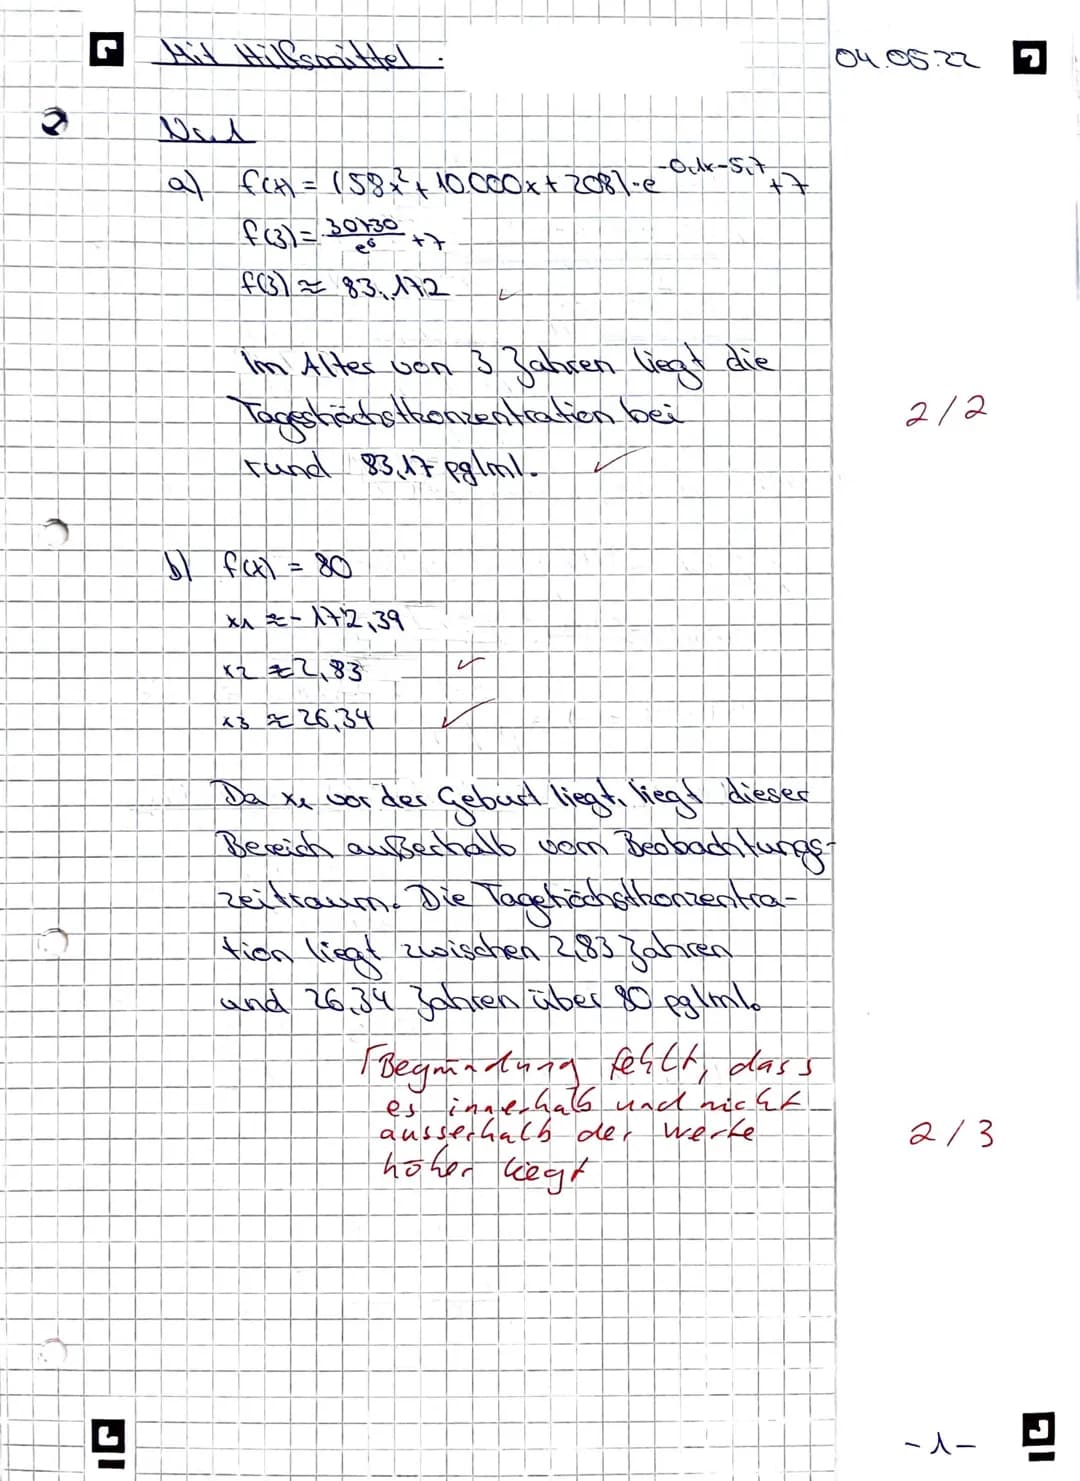 Mit Hilfsmittel.
04.05.22
Nr. 1
a) f(x) = (58x² + 10.000x + 208) · e^-0,1x-5,7 + 7
f(3) = 30730/e⁶ + 7
f(3) ≈ 83,172 ✓
Im Alter von 3 Jahren liegt die
Tageshöchstkonzentration bei
2/2
rund 83,17 pg/ml. ✓
b) f(x) = 80
x1 ≈ -172,39
x2 ≈ 2,83 ✓
x3 ≈ 26,34 ✓
Da x1 vor der Geburt liegt, liegt dieser
Bereich außerhalb vom Beobachtungs-
zeitraum. Die Tagehöchstkonzentra-
tion liegt zwischen 2,83 Jahren
und 26,34 Jahren über 80 pg/ml.
Γ Begründung fehlt, dass
es innerhalb und nicht
ausserhalb der Werte
2/3
höher liegt
-1-